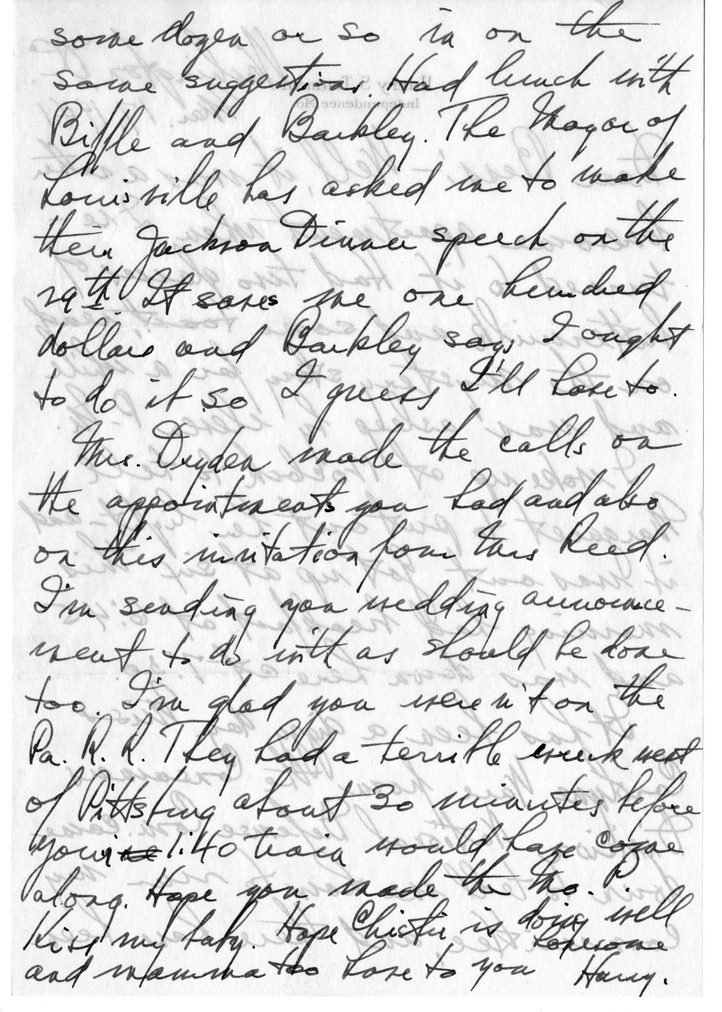 some dozen or so in on the
same suggestion. Had lunch with
Biffle and Barkley. The Mayor of
Louisville has asked me to make
their Jackson Dinner speech on the
29th. It saves me one hundred
dollars and Barkley says I ought
to do it so I guess I'll have to.
Mrs. Dryden made the calls on
the appointments you had and also
on this invitation from Mrs Reed.
I'm sending you wedding announce-
ment to do with as should be done
too. I'm glad you weren't on the
Pa. R. R. They had a terrible wreck west
of Pittsburg about 30 minutes before
your 1:40 train would have come
along. Hope you made the Mo. P.
Kiss my baby. Hope Christie is doing well
and mamma too Love to you
Lonesome
Harry.